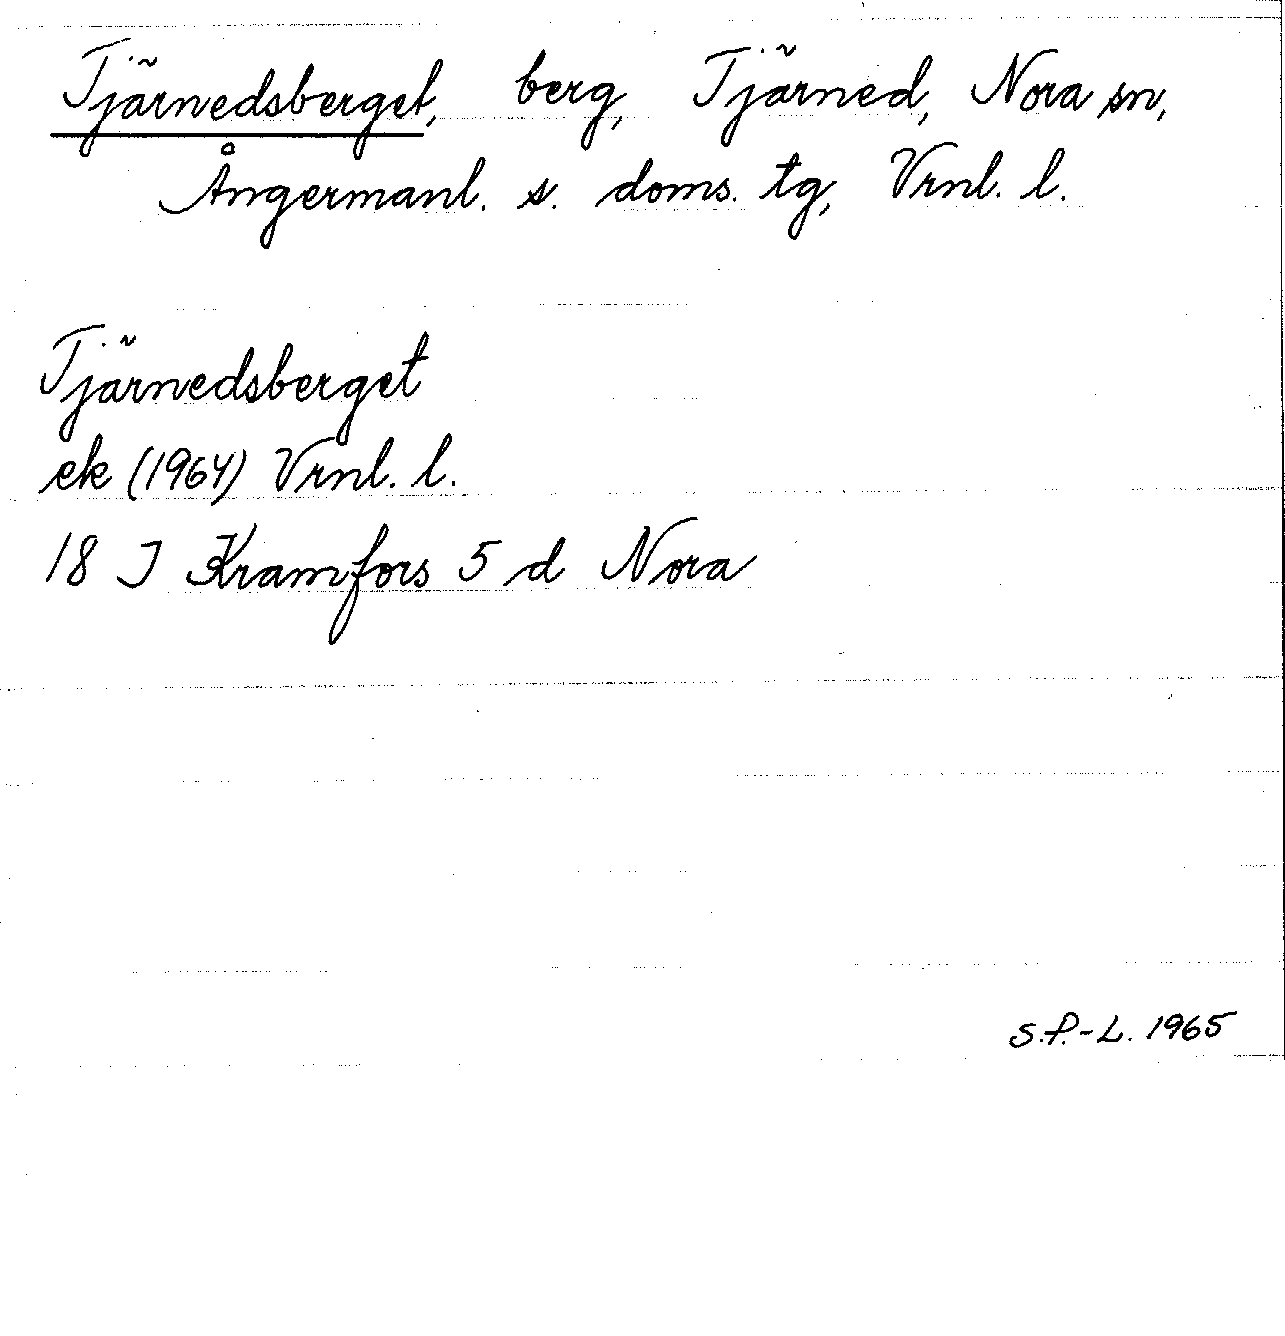 Tjärnedsberget, berg, Tjärned, Nora sn,
Ångermanl. s. doms. tg, Vrnl. l.
Tjärnedsberget
ek (1964) Vrnl. l.
18 J Kramfors 5 d Nora
S.P.-L. 1965